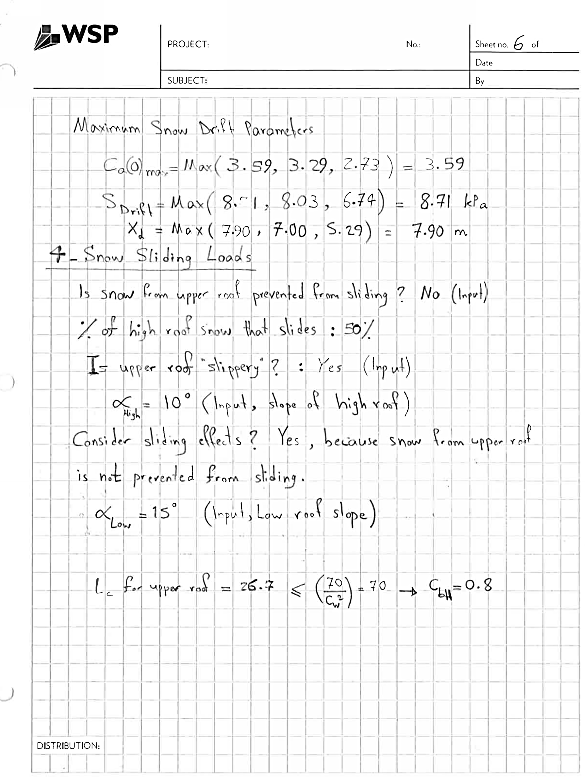 WSP
PROJECT:
No.:
Sheet no. 6 of
Date
SUBJECT:
By
Maximum Snow Drift Parameters
Ca(0)max = Max( 3.59, 3.29, 2.73 ) = 3.59
SDrift = Max( 8.71, 8.03, 6.74) = 8.71 kPa
Xd = Max( 7.90, 7.00, 5.29) = 7.90 m
4 - Snow Sliding Loads
Is snow from upper roof prevented from sliding? No (Input)
% of high roof snow that slides : 50%
Is upper roof "slippery"? : Yes (Input)
αHigh = 10° (Input, slope of high roof)
Consider sliding effects? Yes, because snow from upper roof
is not prevented from sliding.
αLow = 15° (Input, Low roof slope)
lc for upper roof = 26.7 ≤ (70/Cw²) = 70 → CbH = 0.8
DISTRIBUTION: